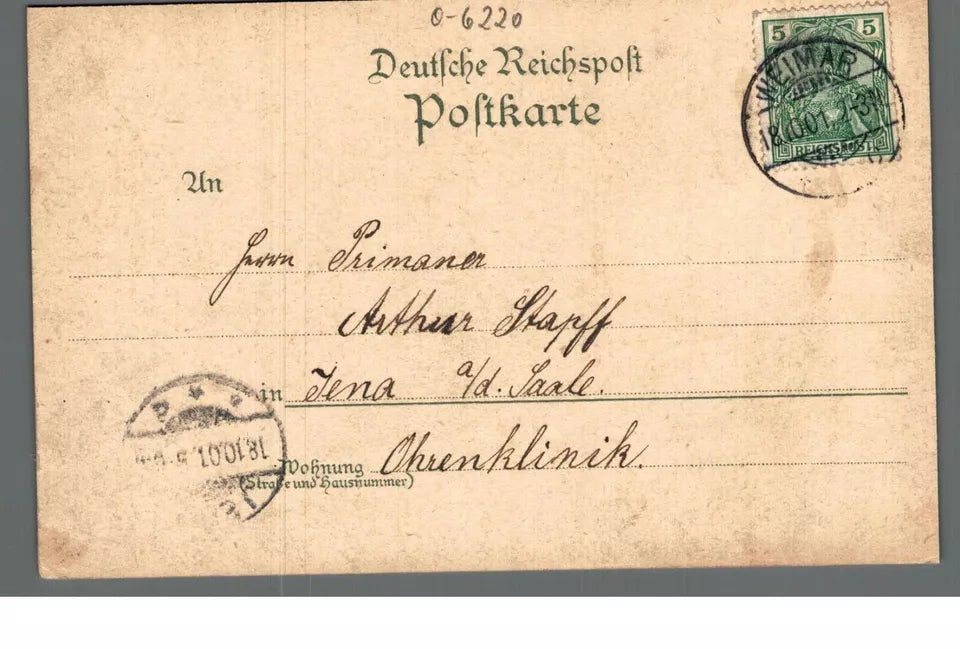 0-6220
Deutsche Reichspost
Postkarte
5 5
REICHSPOST
WEIMAR
18.10.01.
An
Herrn Primaner
Arthur Stapff
in Jena a/d. Saale.
Wohnung Ohrenklinik.
(Straße und Hausnummer)
18.10.01.